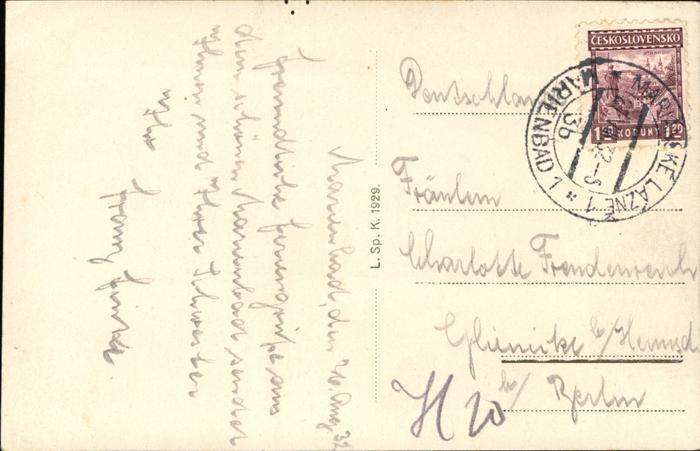 Marienbad, den 26. Aug. 32
Freundliche Feriengrüße aus
dem schönen Marienbad sendet
Ihnen und Ihrer Schwester
Ihr
Franz
L. Sp. K. 1929.
ČESKOSLOVENSKO
1.20 KORUNY 1.20
MARIÁNSKÉ LÁZNĚ 1
MARIENBAD 1
3b
Deutschland
Fräulein
Charlotte
Glienicke b/Hermsd
b/ Berlin
H 20